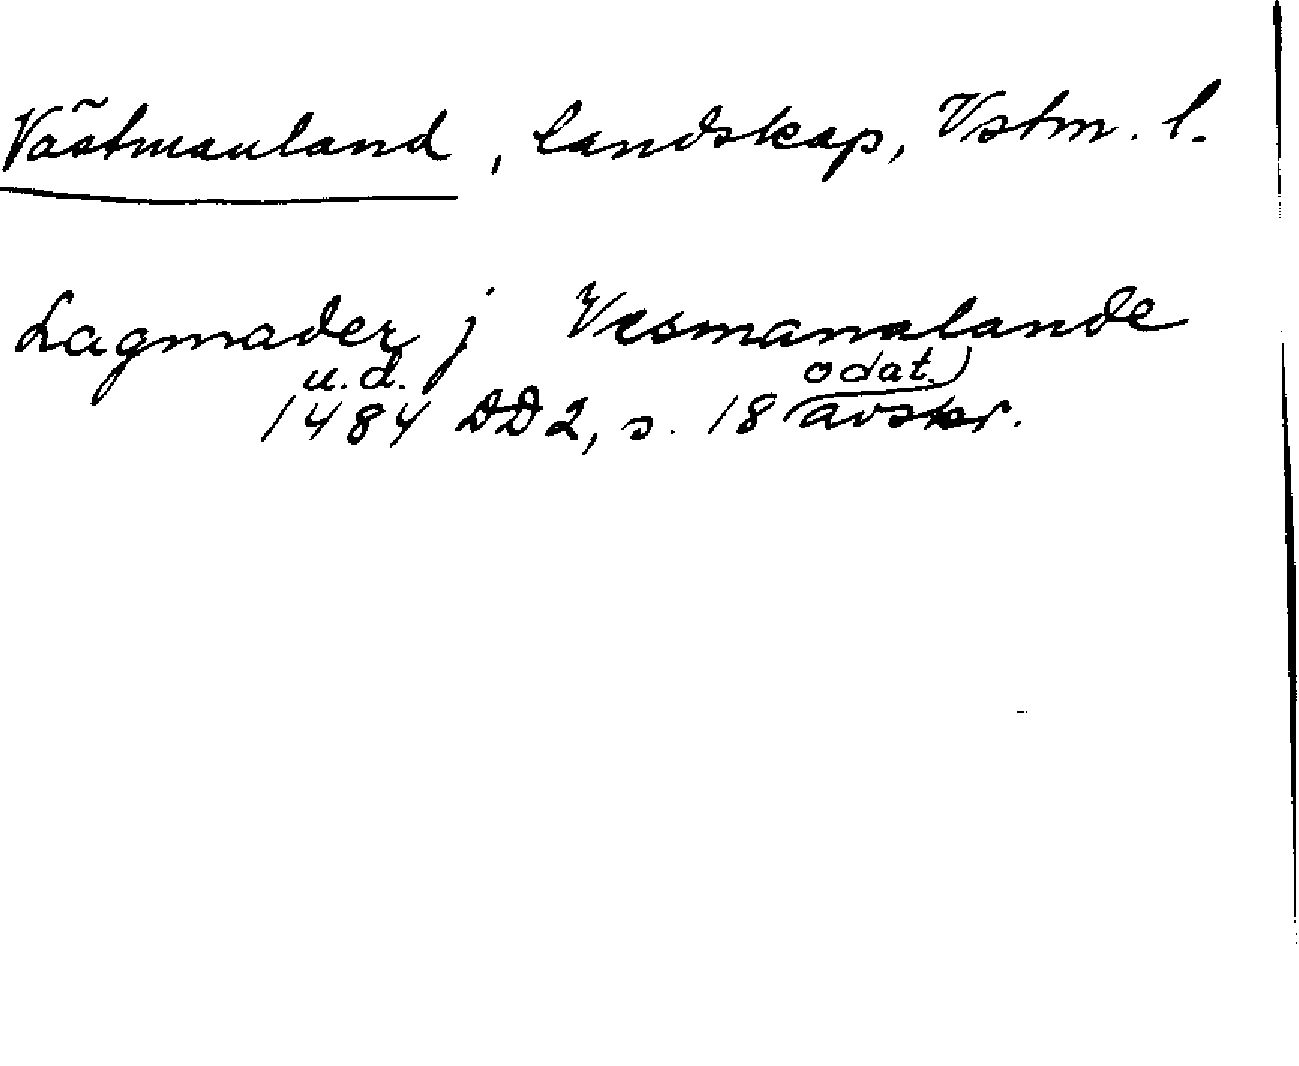 Västmanland, landskap, Vstm. l.
Lagmader j Vesmannalande
u.d. odat.)
1484 DD2, s. 18 avskr.